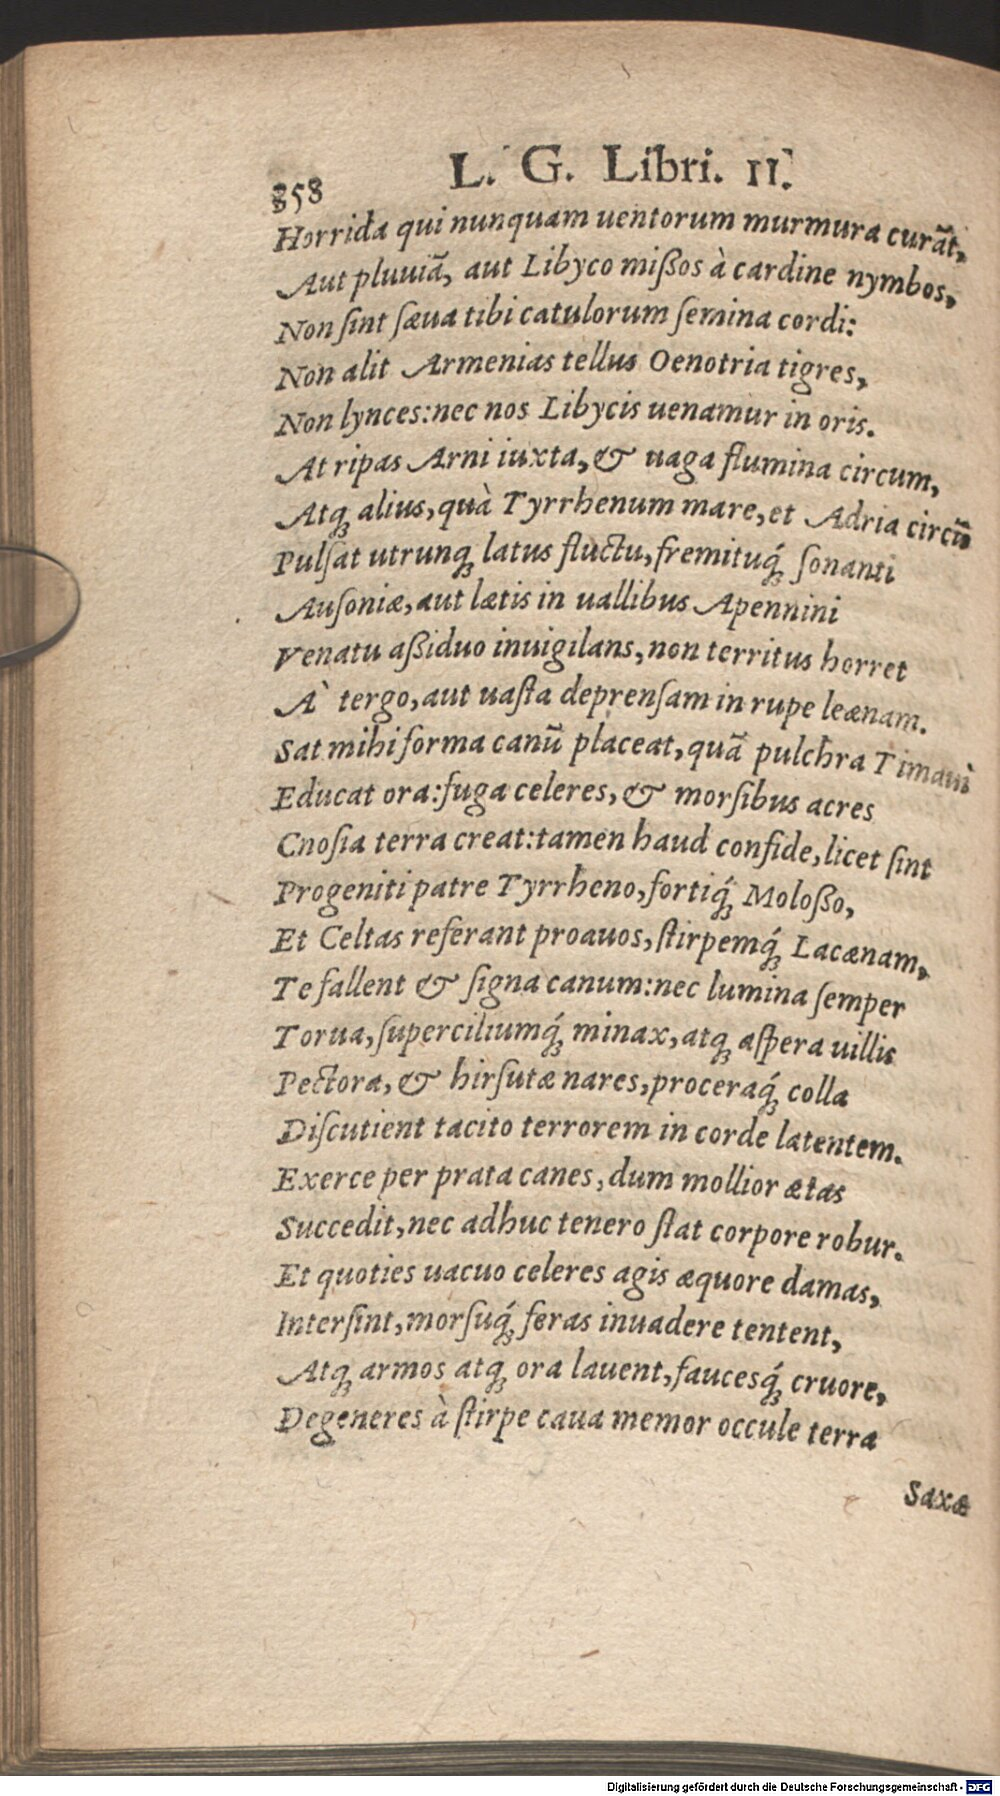 L. G. Libri. II.
358
Horrida qui nunquam uentorum murmura curãt,
Aut pluuiã, aut Libyco mißos à cardine nymbos,
Non ſint ſæua tibi catulorum ſemina cordi:
Non alit Armenias tellus Oenotria tigres,
Non lynces: nec nos Libycis uenamur in oris.
At ripas Arni iuxta, & uaga flumina circum,
Atq; alius, quà Tyrrhenum mare, et Adria circũ
Pulſat utrunq; latus fluctu, fremituq́; ſonanti
Auſoniæ, aut lætis in uallibus Apennini
Venatu aßiduo inuigilans, non territus horret
À tergo, aut uaſta deprenſam in rupe leænam.
Sat mihi forma canũ placeat, quã pulchra Timaui
Educat ora: fuga celeres, & morſibus acres
Cnoſia terra creat: tamen haud confide, licet ſint
Progeniti patre Tyrrheno, fortiq́; Moloßo,
Et Celtas referant proauos, ſtirpemq́; Lacænam,
Te fallent & ſigna canum: nec lumina ſemper
Torua, ſuperciliumq́; minax, atq; aſpera uillis
Pectora, & hirſutæ nares, proceraq́; colla
Diſcutient tacito terrorem in corde latentem.
Exerce per prata canes, dum mollior ætas
Succedit, nec adhuc tenero ſtat corpore robur.
Et quoties uacuo celeres agis æquore damas,
Interſint, morſuq́; feras inuadere tentent,
Atq; armos atq; ora lauent, faucesq́; cruore,
Degeneres à ſtirpe caua memor occule terra
Saxæ
Digitalisierung gefördert durch die Deutsche Forschungsgemeinschaft - DFG